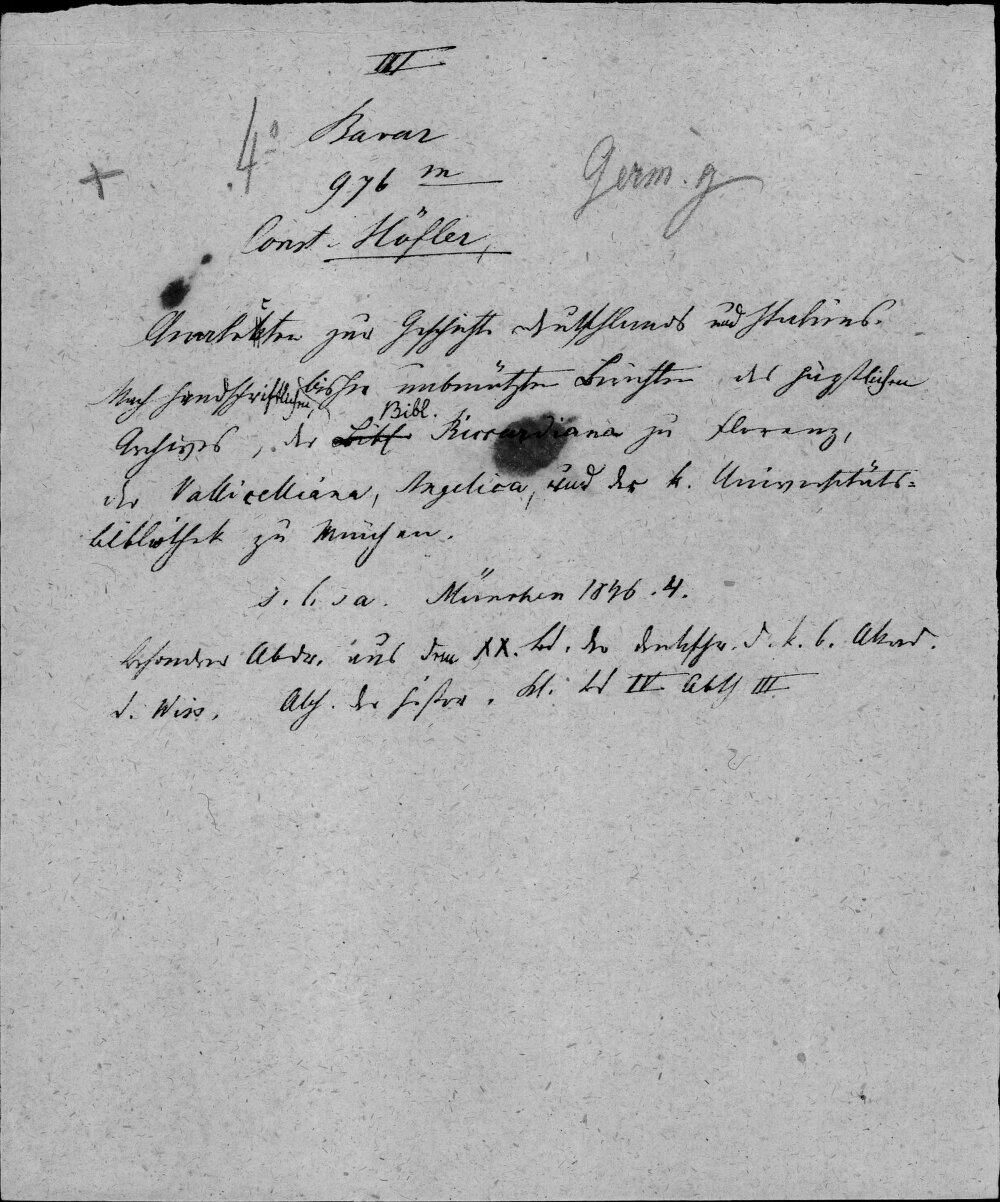 III
4° Bavar
976 m
+
Germ. g
Const. Höfler,
Analekten zur Geschichte Deutschlands und Italiens.
Nach handschriftlichen, bisher unbenützten Berichten des päpstlichen
Archives, der Bibl. Riccardiana zu Florenz,
der Vallicelliana, Angelica, und der k. Universitäts=
bibliothek zu München.
s. l. s a. München 1846. 4.
besonder Abdr. aus dem XX. Bd. der Denkschr. d. k. b. Akad.
d. Wiss. Abh. der histor. Kl. Bd IV Abth III